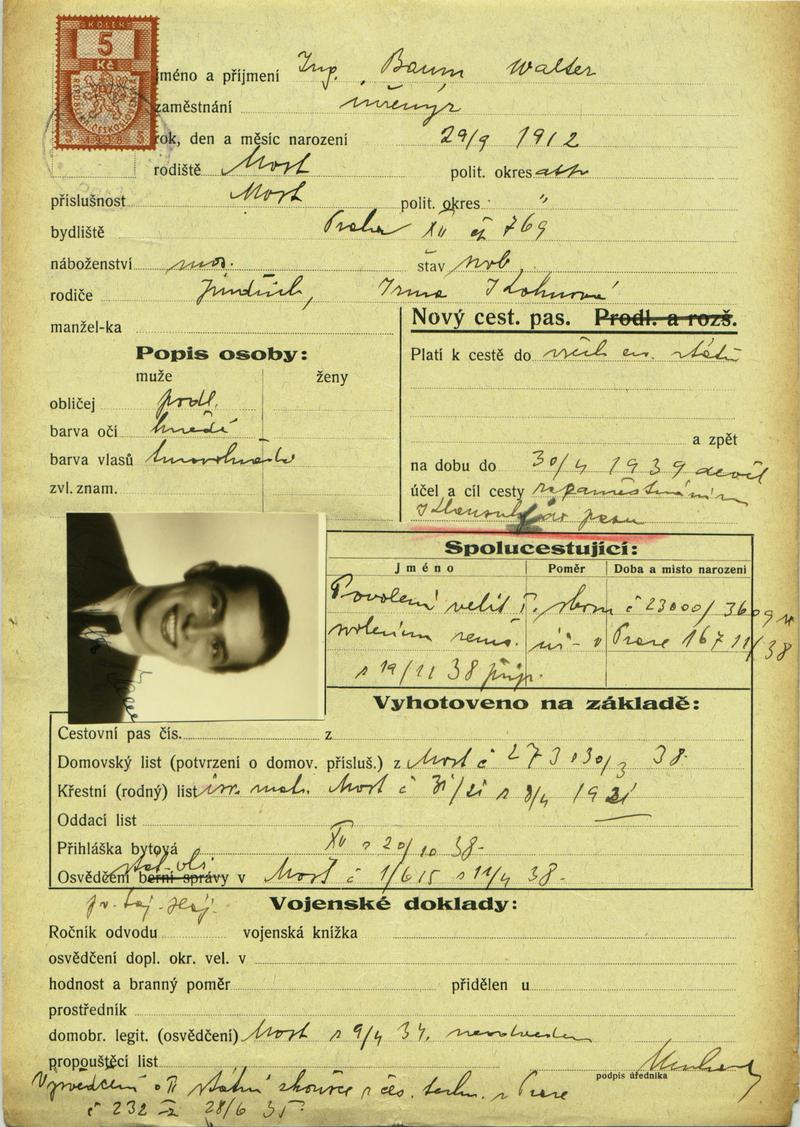 KOLEK
5
Kč
jméno a příjmení Ing. Baum Walter
zaměstnání inženýr
rok, den a měsíc narození 29/9 1912
rodiště Most polit. okres
příslušnost Most polit. okres "
bydliště Praha XII čp 769
náboženství mos. stav svob.
rodiče Jindřich, Irma Kohnová
manžel-ka
Nový cest. pas. Prodl. a rozš.
Popis osoby:
muže ženy
Platí k cestě do všech ev. států
obličej podl.
barva očí hnědé
barva vlasů tmavohnědé
zvl. znam.
a zpět
na dobu do 30/4 1939
účel a cíl cesty za zaměstnáním
Spolucestující:
Jméno Poměr Doba a místo narození
Povolení velit. I. sboru č 23000/
v Praze 16/11 38
s 19/11 38
Vyhotoveno na základě:
Cestovní pas čís. z
Domovský list (potvrzení o domov. přísluš.) z Most č 273 30/3 38
Křestní (rodný) list isr. Most č
Oddací list
Přihláška bytová XII s 20/10 38-
Osvědčení berní správy v Most č 1/615 s 11/4 38-
Vojenské doklady:
Ročník odvodu vojenská knížka
osvědčení dopl. okr. vel. v
hodnost a branný poměr přidělen u
prostředník
domobr. legit. (osvědčení) Most s 9/4 37. neodveden
propouštěcí list
podpis úředníka
Vysvědčení o II státní zkoušce z čes. techn. v Praze
č 232 28/6 35